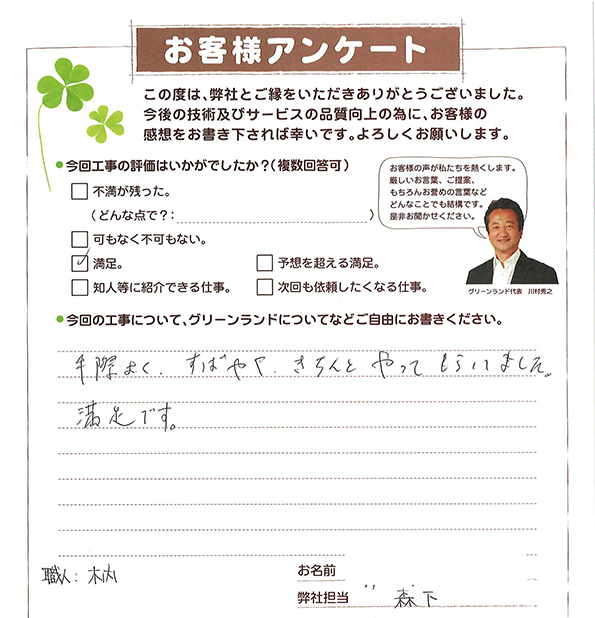 お客様アンケート
この度は、弊社とご縁をいただきありがとうございました。
今後の技術及びサービスの品質向上の為に、お客様の
感想をお書き下されば幸いです。よろしくお願いします。
●今回工事の評価はいかがでしたか?(複数回答可)
□不満が残った。
(どんな点で?: )
□可もなく不可もない。
☑満足。 □予想を超える満足。
□知人等に紹介できる仕事。 □次回も依頼したくなる仕事。
お客様の声が私たちを熱くします。
厳しいお言葉、ご提案、
もちろんお誉めの言葉など
どんなことでも結構です。
是非お聞かせください。
グリーンランド代表 川村秀之
●今回の工事について、グリーンランドについてなどご自由にお書きください。
手際よく、すばやく、きちんと やって もらいました。
満足です。
職人:
お名前
弊社担当 森下